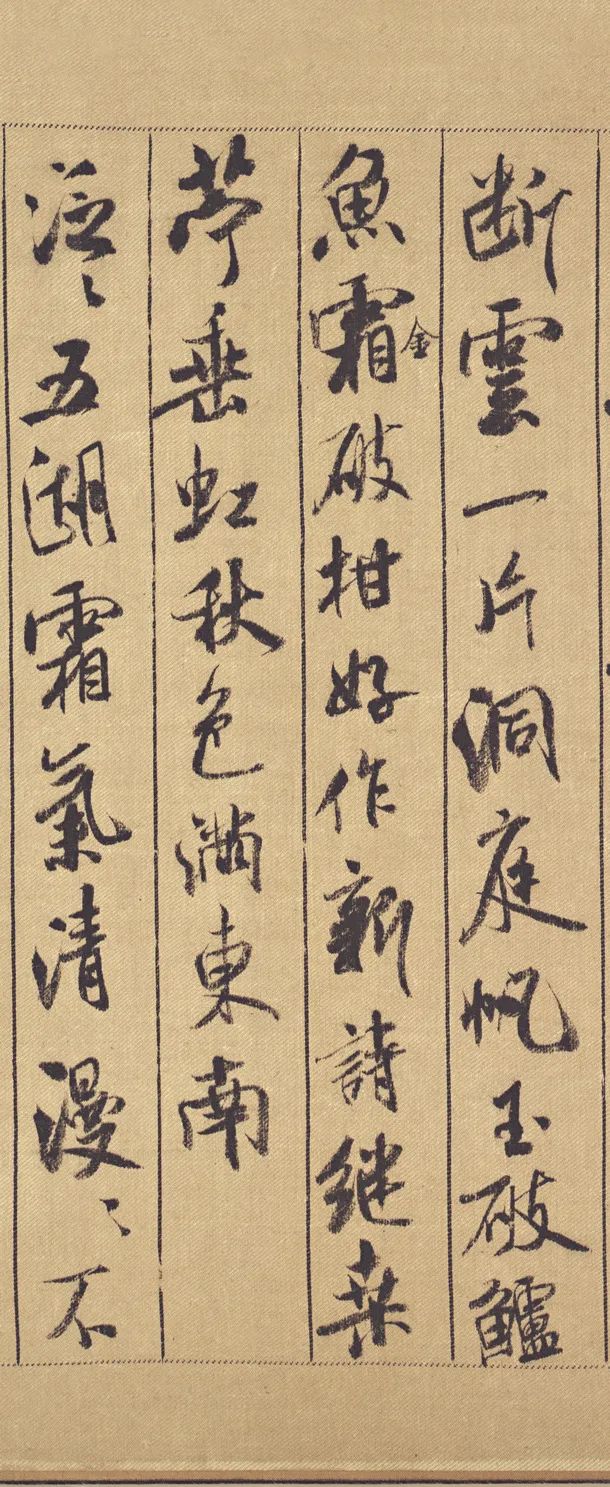 断雲一片洞庭帆玉破鱸
魚霜金破柑好作新詩継桒
苧垂虹秋色滿東南
泛〻五湖霜氣清漫〻不